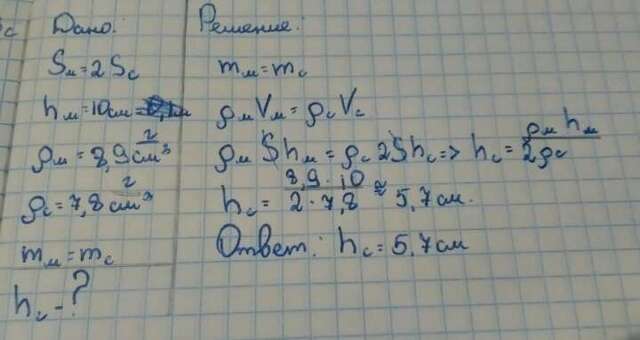 с Дано:
Sм = 2Sс
hм = 10см =
ρм = 8,9 г/см³
ρс = 7,8 г/см³
mм = mс
hс - ?
Решение:
mм = mс
ρмVм = ρсVс
ρм S hм = ρс 2S hс => hс = ρм hм / 2ρс
hс = 8,9 · 10 / 2 · 7,8 ≈ 5,7 см.
Ответ: hс = 5,7 см